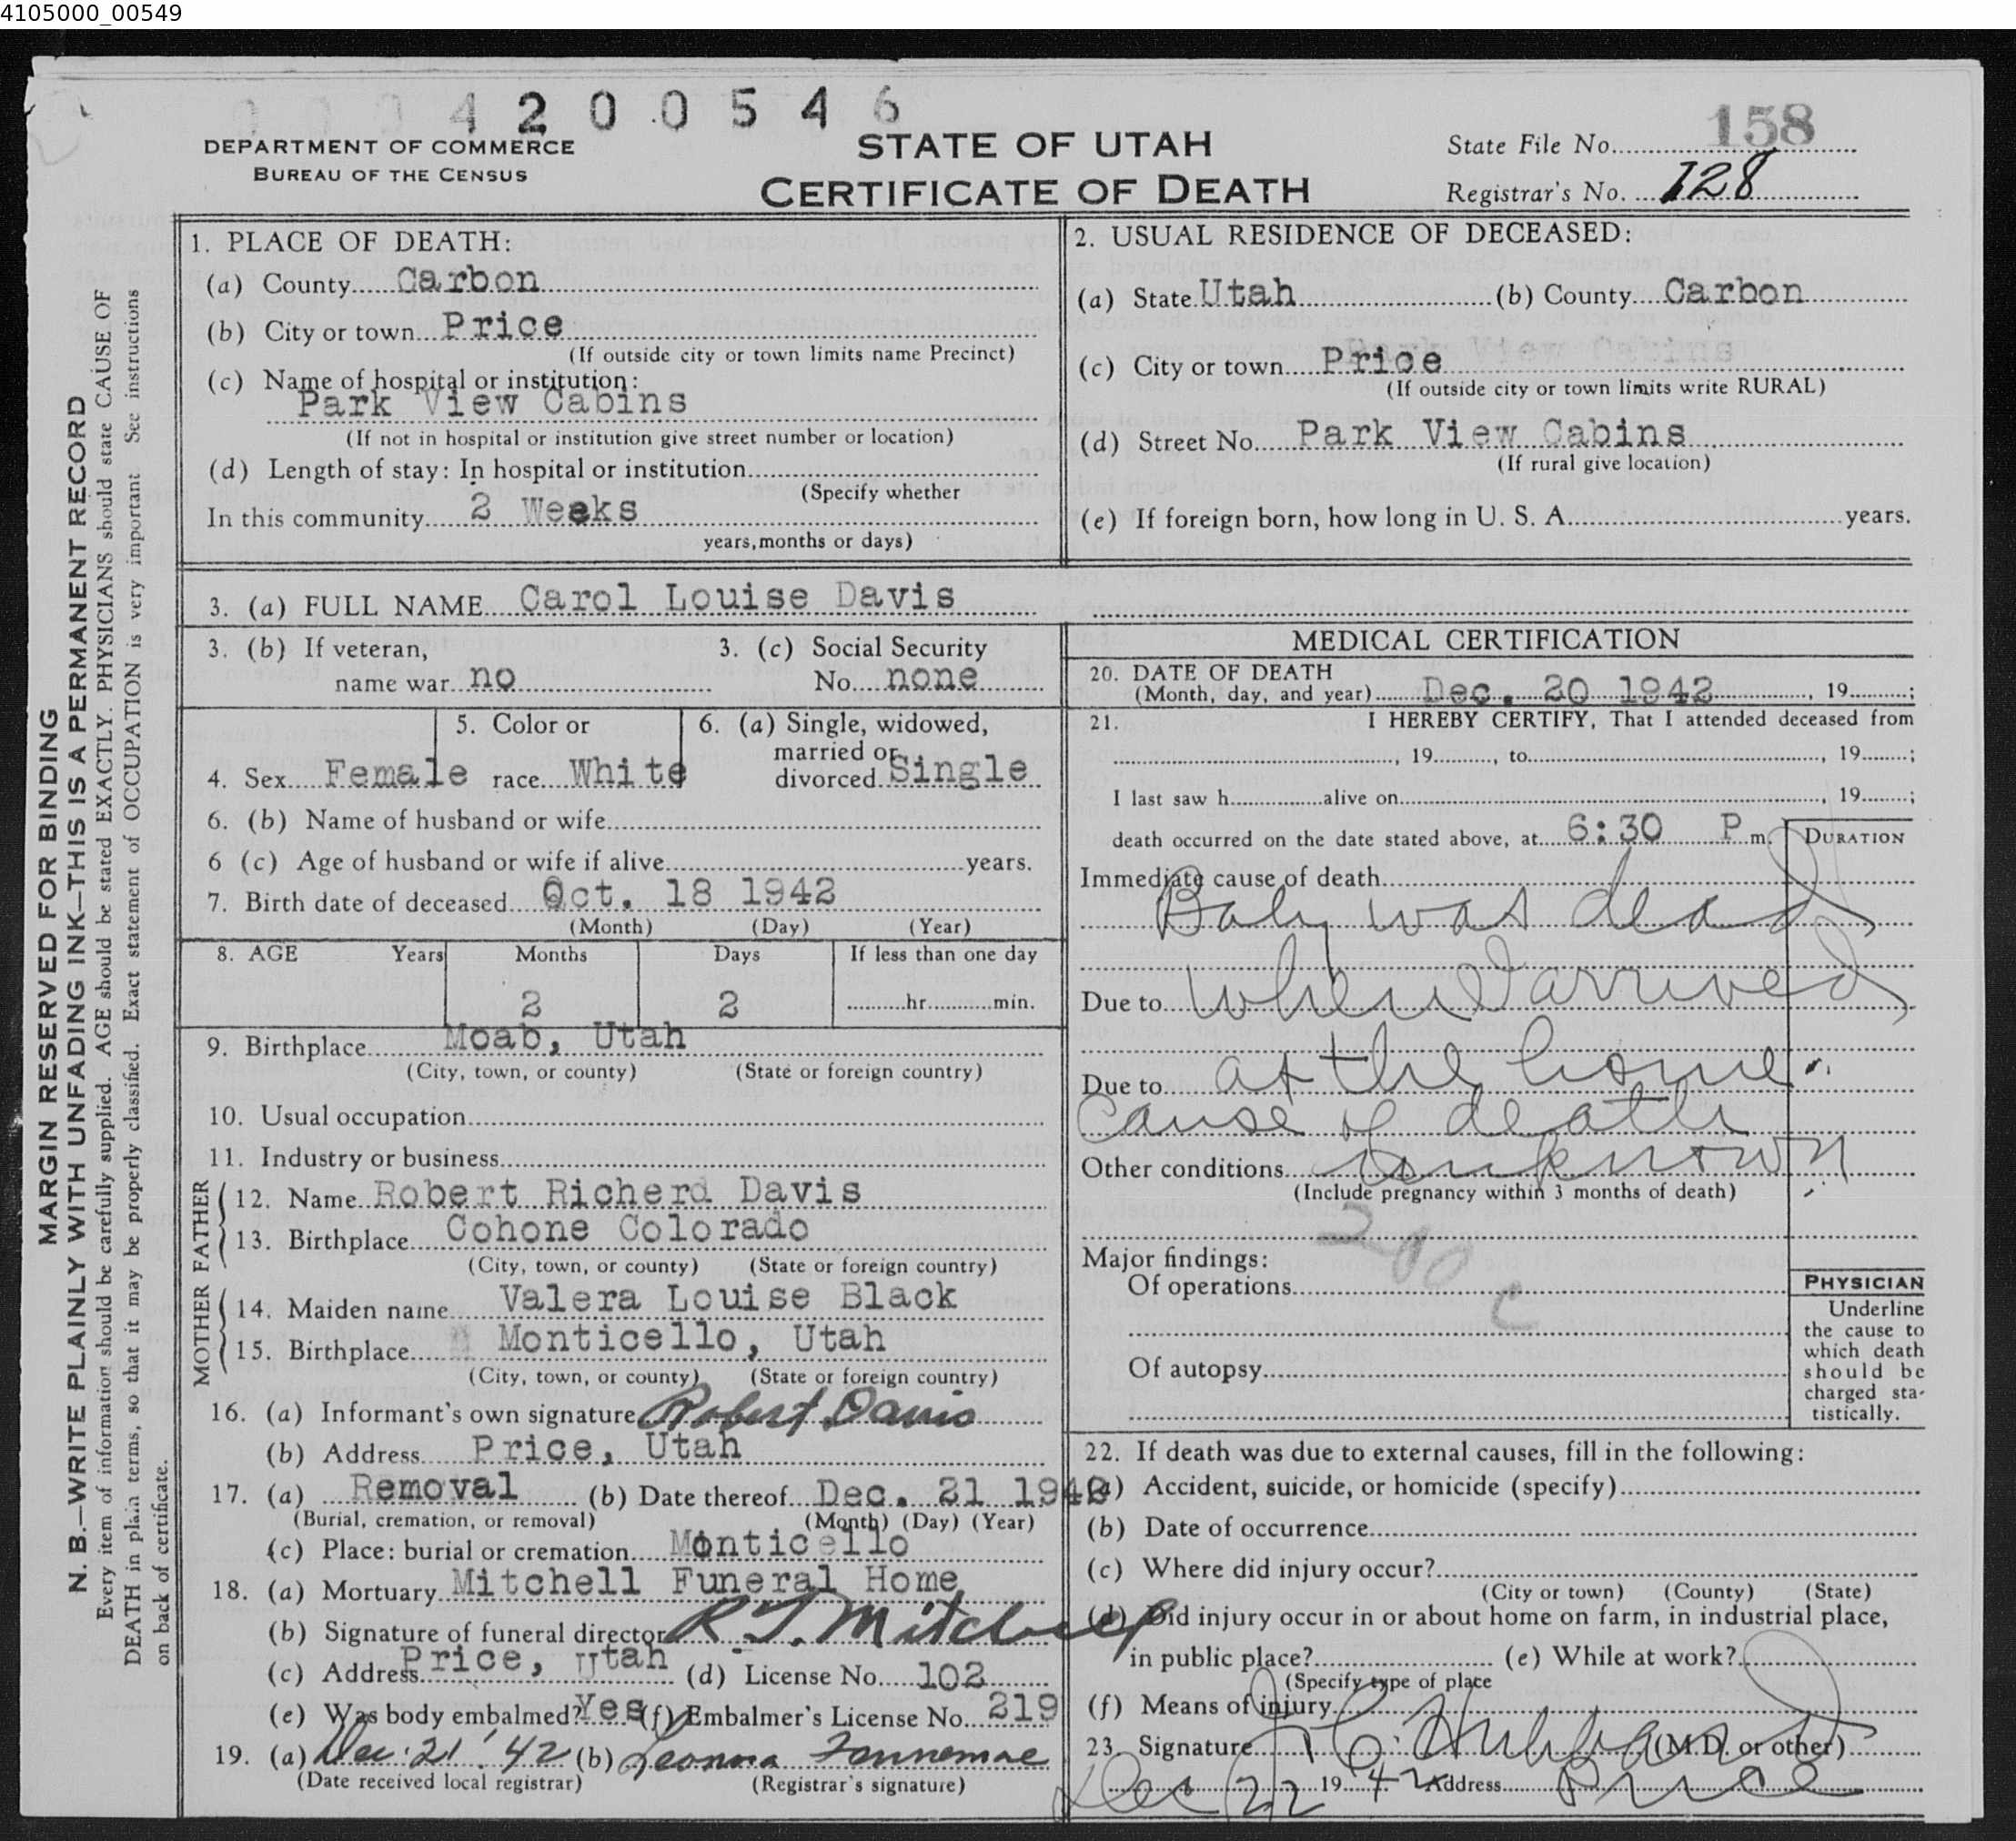 4105000_00549
0004200546
158
DEPARTMENT OF COMMERCE
BUREAU OF THE CENSUS
STATE OF UTAH
CERTIFICATE OF DEATH
State File No.
Registrar's No. 128
MARGIN RESERVED FOR BINDING
N. B.—WRITE PLAINLY WITH UNFADING INK—THIS IS A PERMANENT RECORD
Every item of information should be carefully supplied. AGE should be stated EXACTLY. PHYSICIANS should state CAUSE OF
DEATH in plain terms, so that it may be properly classified. Exact statement of OCCUPATION is very important. See instructions
on back of certificate.
1. PLACE OF DEATH:
(a) County Carbon
(b) City or town Price
(If outside city or town limits name Precinct)
(c) Name of hospital or institution:
Park View Cabins
(If not in hospital or institution give street number or location)
(d) Length of stay: In hospital or institution
(Specify whether
In this community 2 Weeks
years, months or days)
2. USUAL RESIDENCE OF DECEASED:
(a) State Utah (b) County Carbon
(c) City or town Price
(If outside city or town limits write RURAL)
(d) Street No. Park View Cabins
(If rural give location)
(e) If foreign born, how long in U. S. A. years.
3. (a) FULL NAME Carol Louise Davis
3. (b) If veteran,
name war no
3. (c) Social Security
No. none
4. Sex Female
5. Color or
race White
6. (a) Single, widowed,
married or
divorced Single
6. (b) Name of husband or wife
6 (c) Age of husband or wife if alive years.
7. Birth date of deceased Oct. 18 1942
(Month) (Day) (Year)
8. AGE Years Months Days If less than one day
2 2 hr. min.
9. Birthplace Moab, Utah
(City, town, or county) (State or foreign country)
10. Usual occupation
11. Industry or business
FATHER
12. Name Robert Richerd Davis
13. Birthplace Cohone Colorado
(City, town, or county) (State or foreign country)
MOTHER
14. Maiden name Valera Louise Black
15. Birthplace Monticello, Utah
(City, town, or county) (State or foreign country)
16. (a) Informant's own signature Robert Davis
(b) Address Price, Utah
17. (a) Removal (b) Date thereof Dec. 21 1942
(Burial, cremation, or removal) (Month) (Day) (Year)
(c) Place: burial or cremation Monticello
18. (a) Mortuary Mitchell Funeral Home
(b) Signature of funeral director R. T. Mitchell
(c) Address Price, Utah (d) License No. 102
(e) Was body embalmed? Yes (f) Embalmer's License No. 219
19. (a) Dec. 21 '42 (b) Leonna Fannemae
(Date received local registrar) (Registrar's signature)
MEDICAL CERTIFICATION
20. DATE OF DEATH
(Month, day, and year) Dec. 20 1942, 19 ;
21. I HEREBY CERTIFY, That I attended deceased from
, 19 , to , 19 ;
I last saw h alive on , 19 ;
death occurred on the date stated above, at 6:30 P m.
DURATION
Immediate cause of death
Baby was dead
Due to when I arrived
Due to at the home.
Cause of death
Other conditions unknown
(Include pregnancy within 3 months of death)
200
c
Major findings:
Of operations
Of autopsy
PHYSICIAN
Underline
the cause to
which death
should be
charged sta-
tistically.
22. If death was due to external causes, fill in the following:
(a) Accident, suicide, or homicide (specify)
(b) Date of occurrence
(c) Where did injury occur?
(City or town) (County) (State)
(d) Did injury occur in or about home on farm, in industrial place,
in public place? (e) While at work?
(Specify type of place
(f) Means of injury
23. Signature J. C. Hubbard (M.D. or other)
Dec 22 1942 Address Price